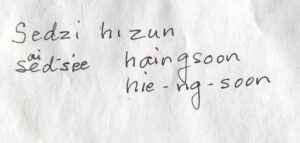 Sedzi hizun
ai
sed-see haingsoon
hie-ng-soon